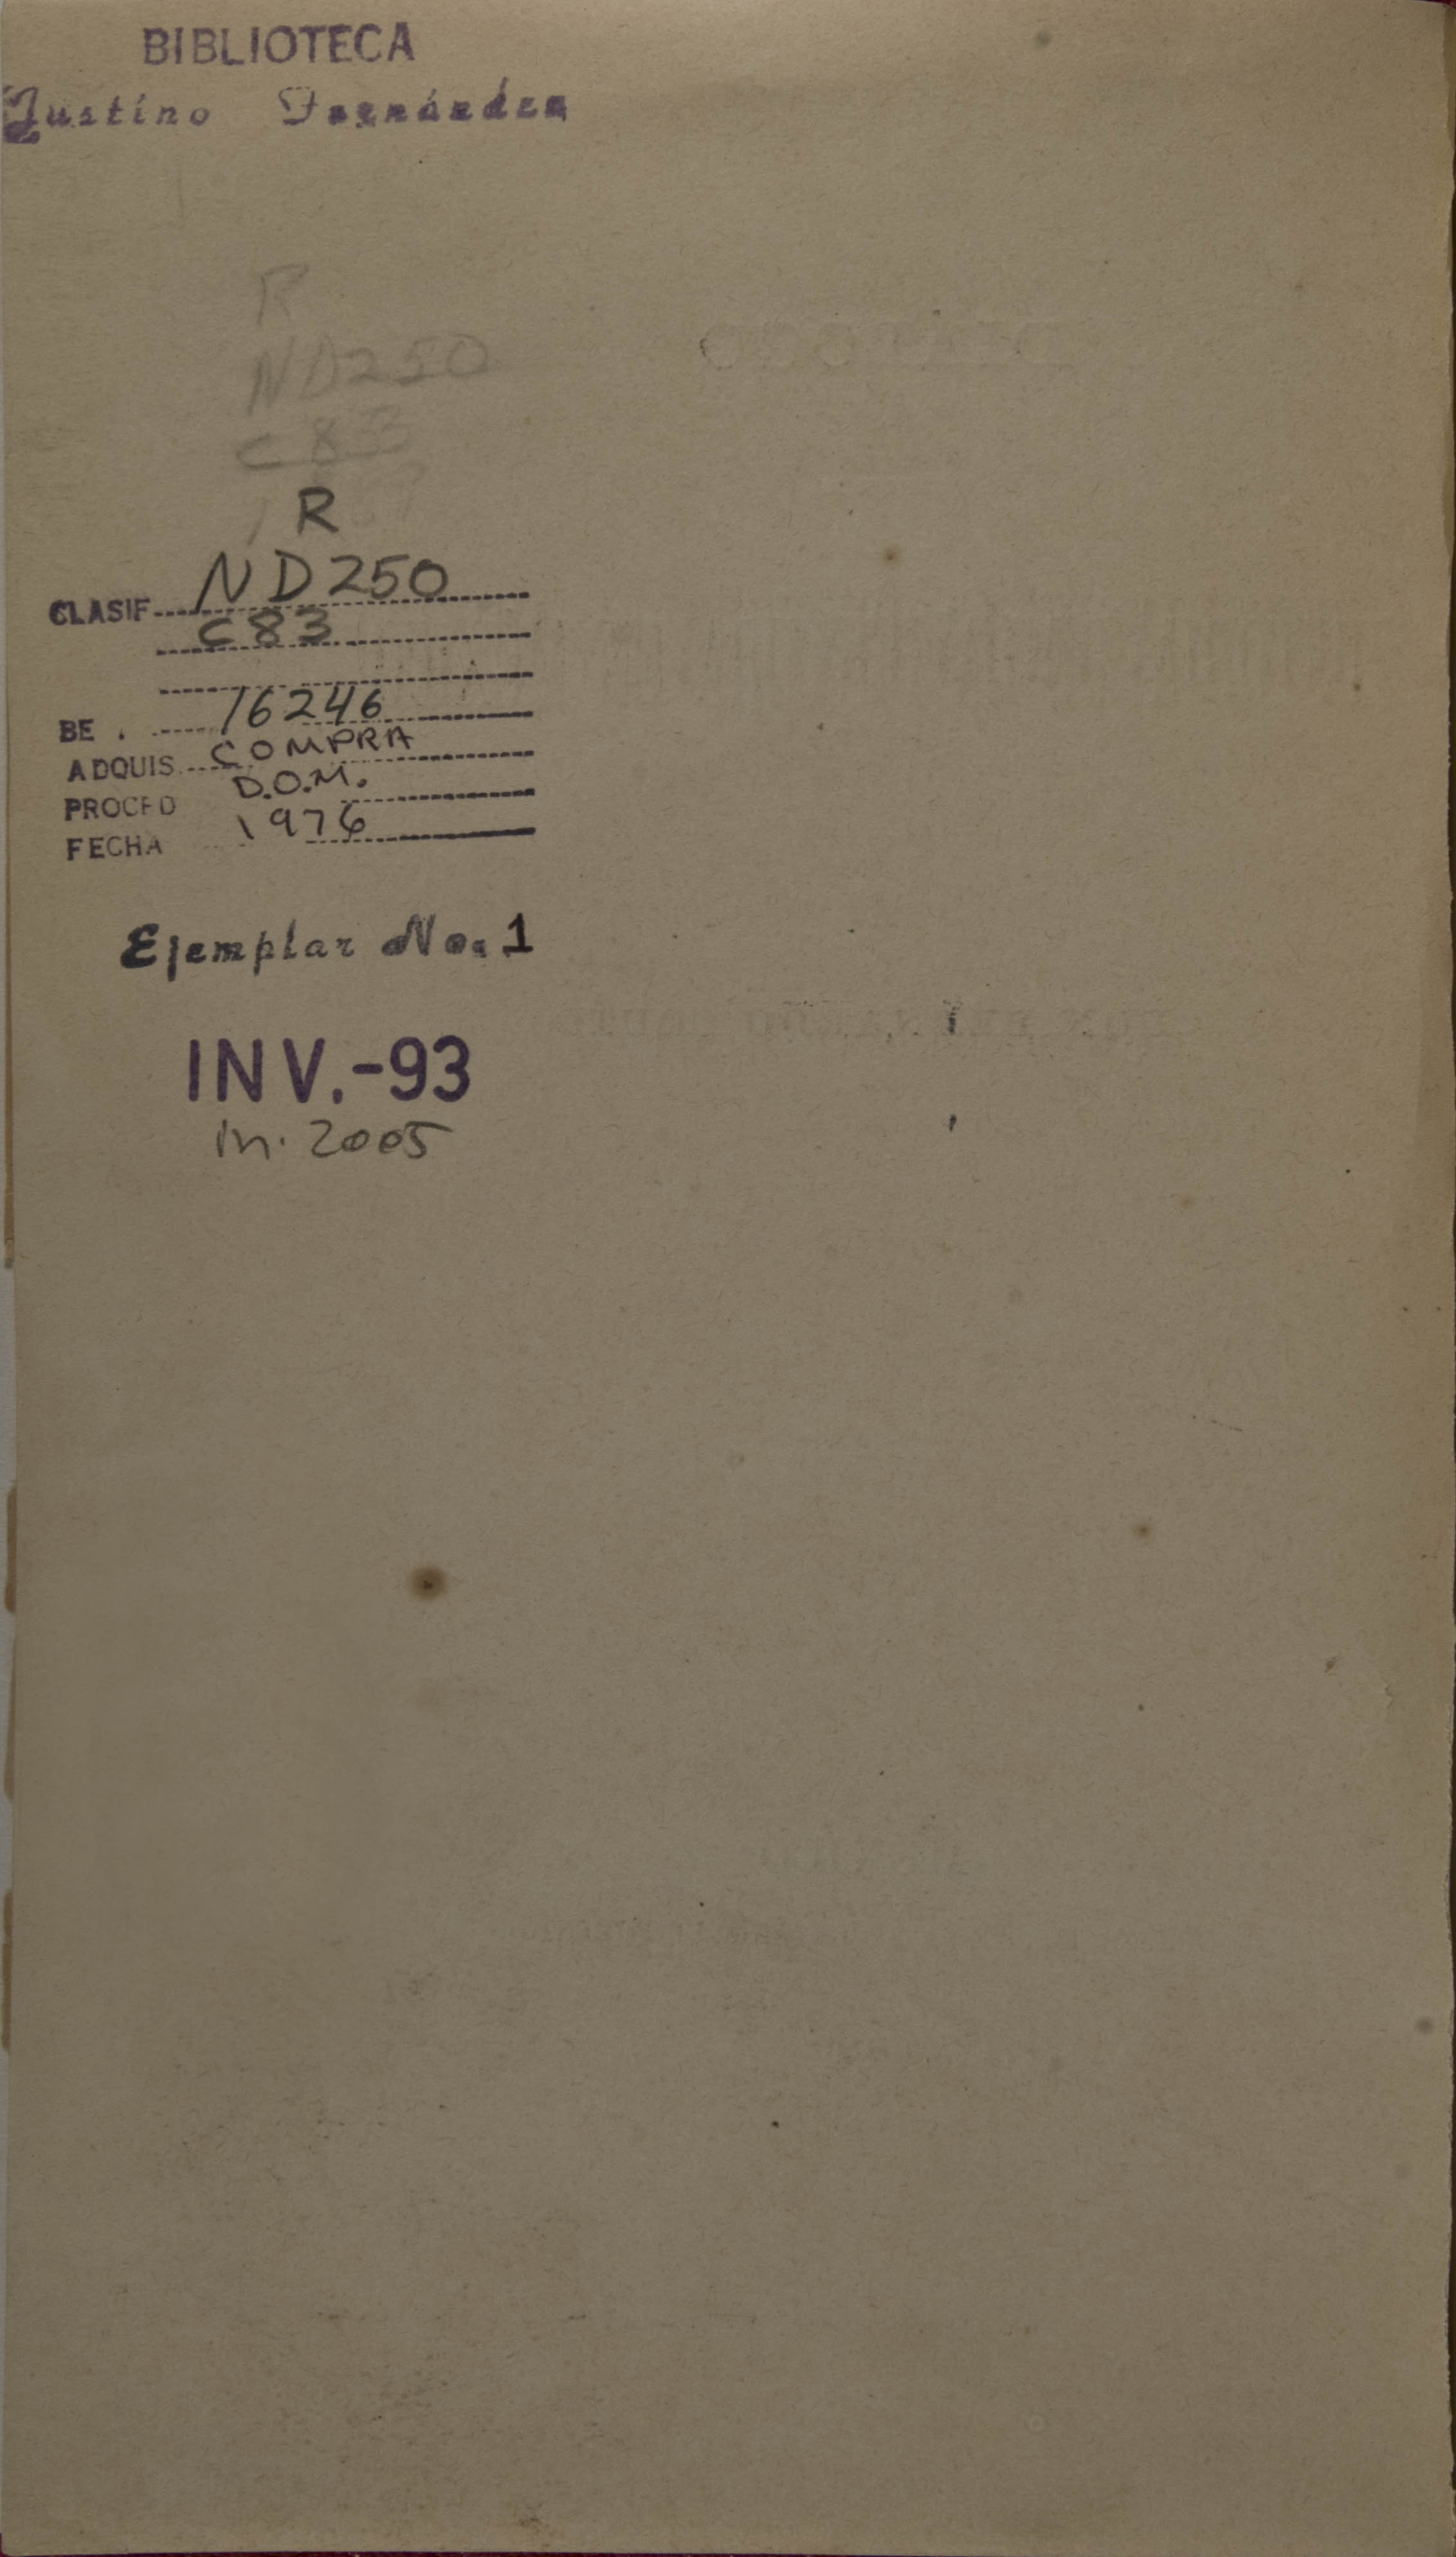 BIBLIOTECA
Justino Fernández
R
ND250
C83
R
CLASIF ND250
C83
BE . 16246
ADQUIS COMPRA
PROCED D.O.M.
FECHA 1976
Ejemplar No. 1
INV.-93
in. 2005